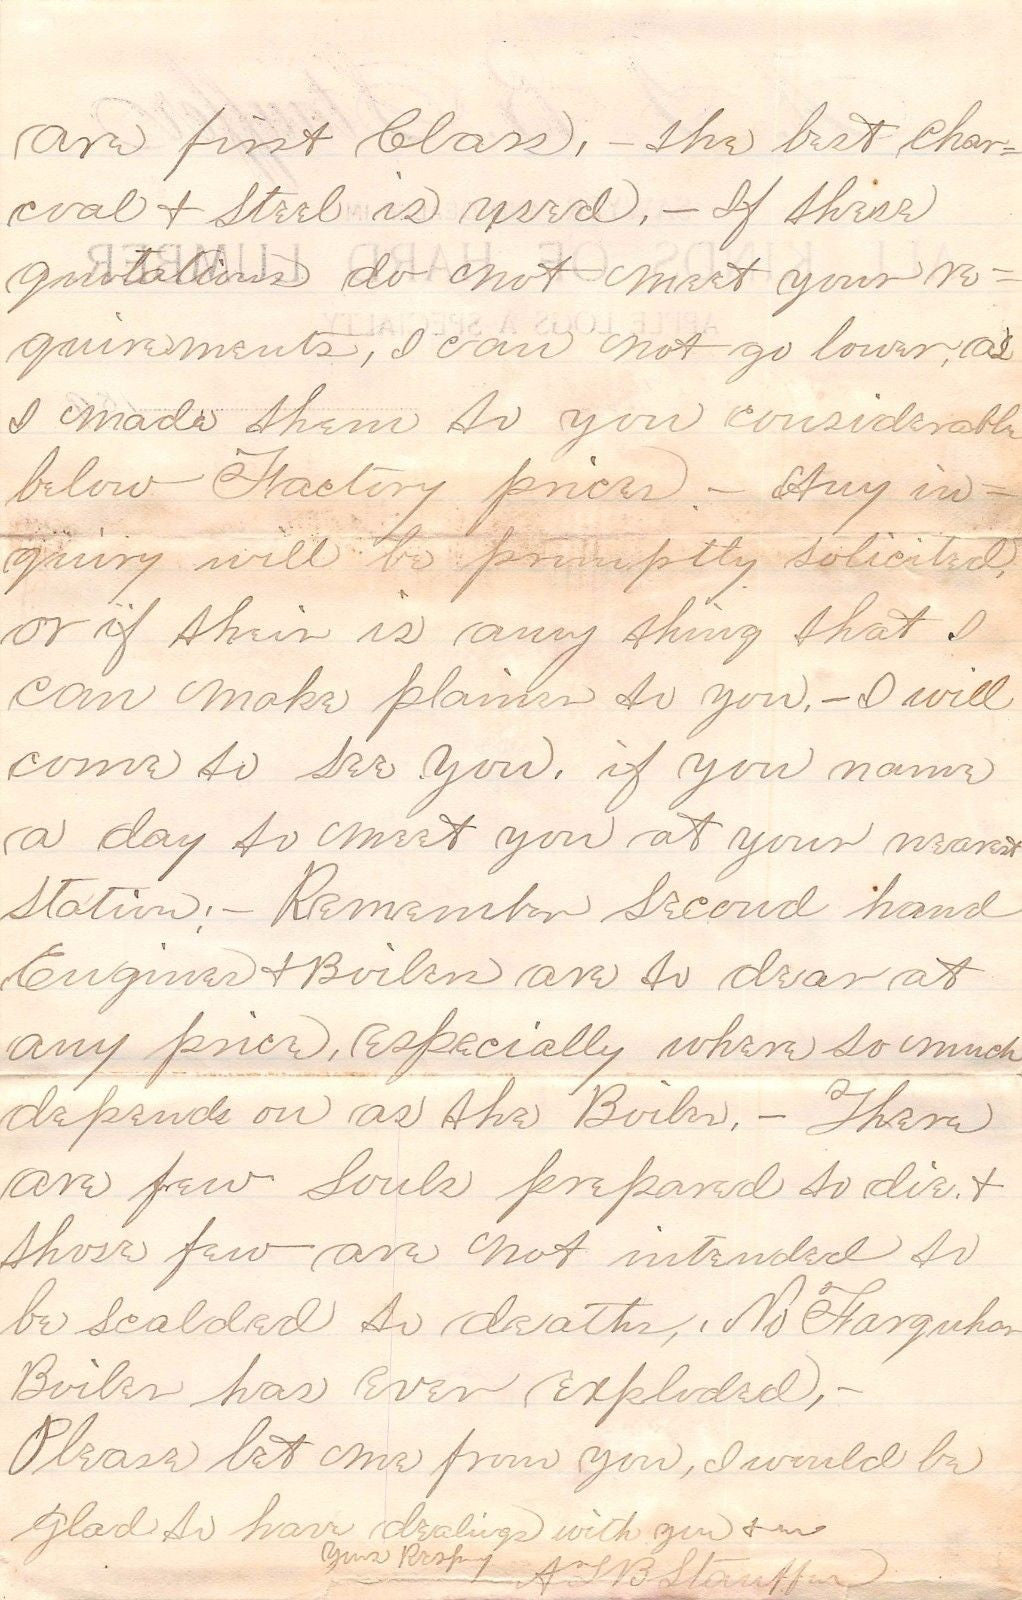 are first Class, - the best char=
coal & Steel is used, - If these
quotations do not meet your re=
quirements, I can not go lower, as
I made them to you considerable
below Factory prices - Any in=
quiry will be promptly solicited,
or if their is any thing that I
can make plainer to you, - I will
come to see you, if you name
a day to meet you at your nearest
station; - Remember second hand
Engines & Boilers are to dear at
any price, especially where so much
depends on as the Boiler, - There
are few Souls prepared to die, &
those few are not intended to
be scalded to death, No Farquhar
Boiler has ever exploded, -
Please let me from you, I would be
glad to have dealings with you &
Yours Respy
A S B Stauffer